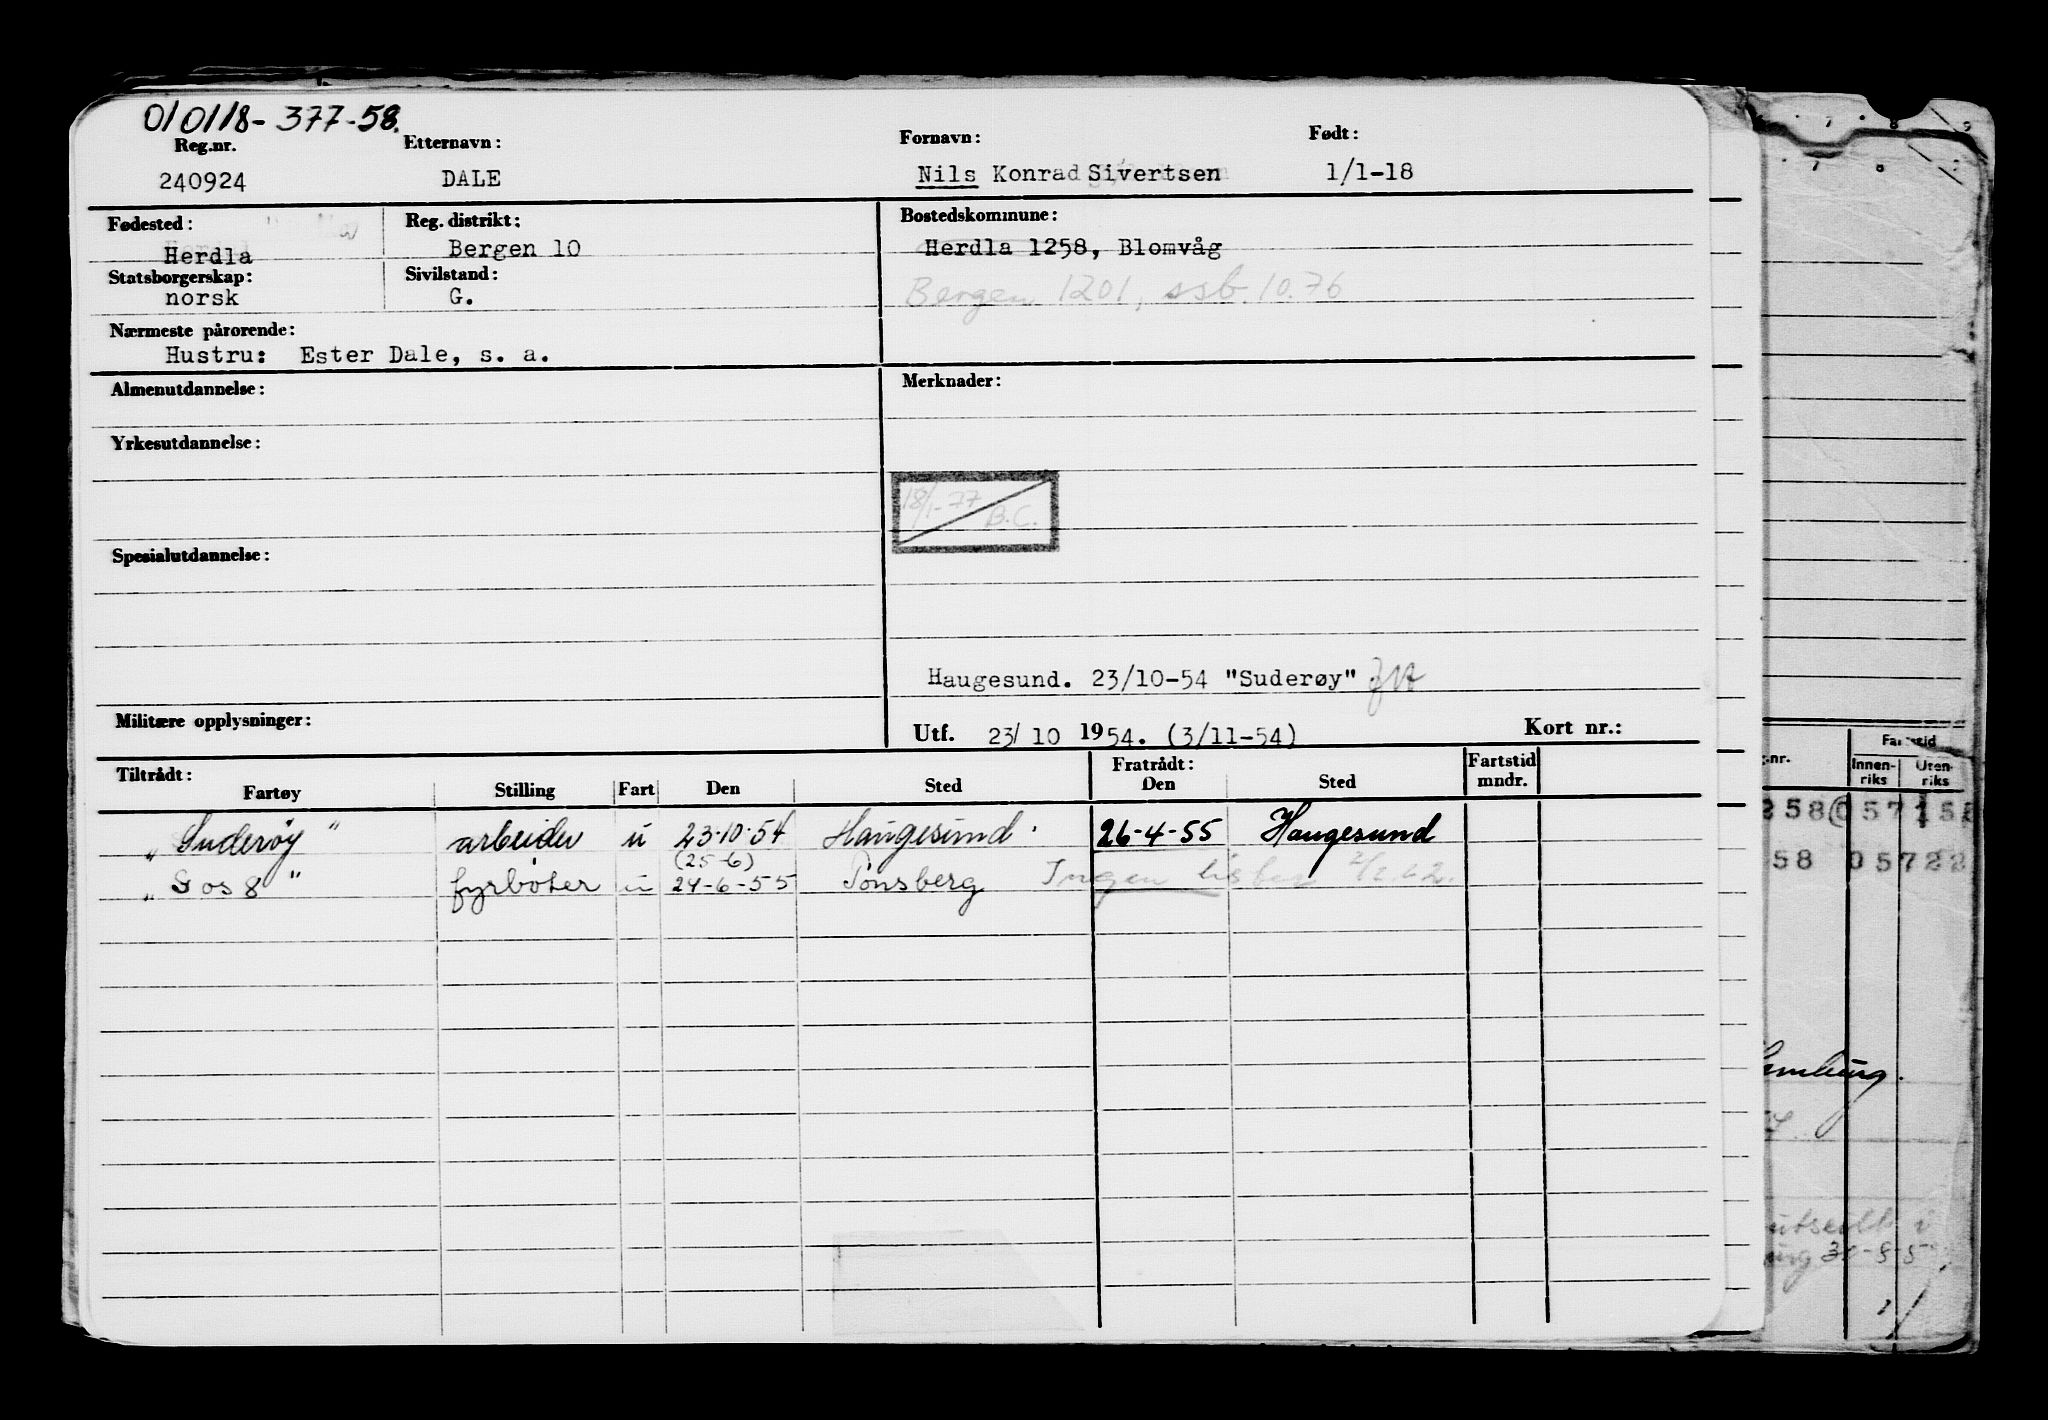 010118-377-58.
Reg.nr. Etternavn: Fornavn: Født:
240924 DALE Nils Konrad Sivertsen 1/1-18
Fødested: Reg. distrikt: Bostedskommune:
Herdla Bergen 10 Herdla 1258, Blomvåg
Statsborgerskap: Sivilstand:
norsk G. Bergen 1201, ssb. 10.76
Nærmeste pårørende:
Hustru: Ester Dale, s. a.
Almenutdannelse: Merknader:
Yrkesutdannelse:
18/1-77 B.C.
Spesialutdannelse:
Haugesund. 23/10-54 "Suderøy"
Militære opplysninger: Utf. 23/10 1954. (3/11-54) Kort nr.:
Tiltrådt: Fratrådt: Fartstid
Fartøy Stilling Fart Den Sted Den Sted mndr.
"Suderøy" arbeider u 23-10-54 Haugesund. 26-4-55 Haugesund
(25-6)
"Sos 8" fyrbøter u 24-6-55 Tønsberg Ingen lister 2/2 62.
Fartstid
Innen-riks Uten-riks
258 057155
58 05722
utseilt i
31-8-5